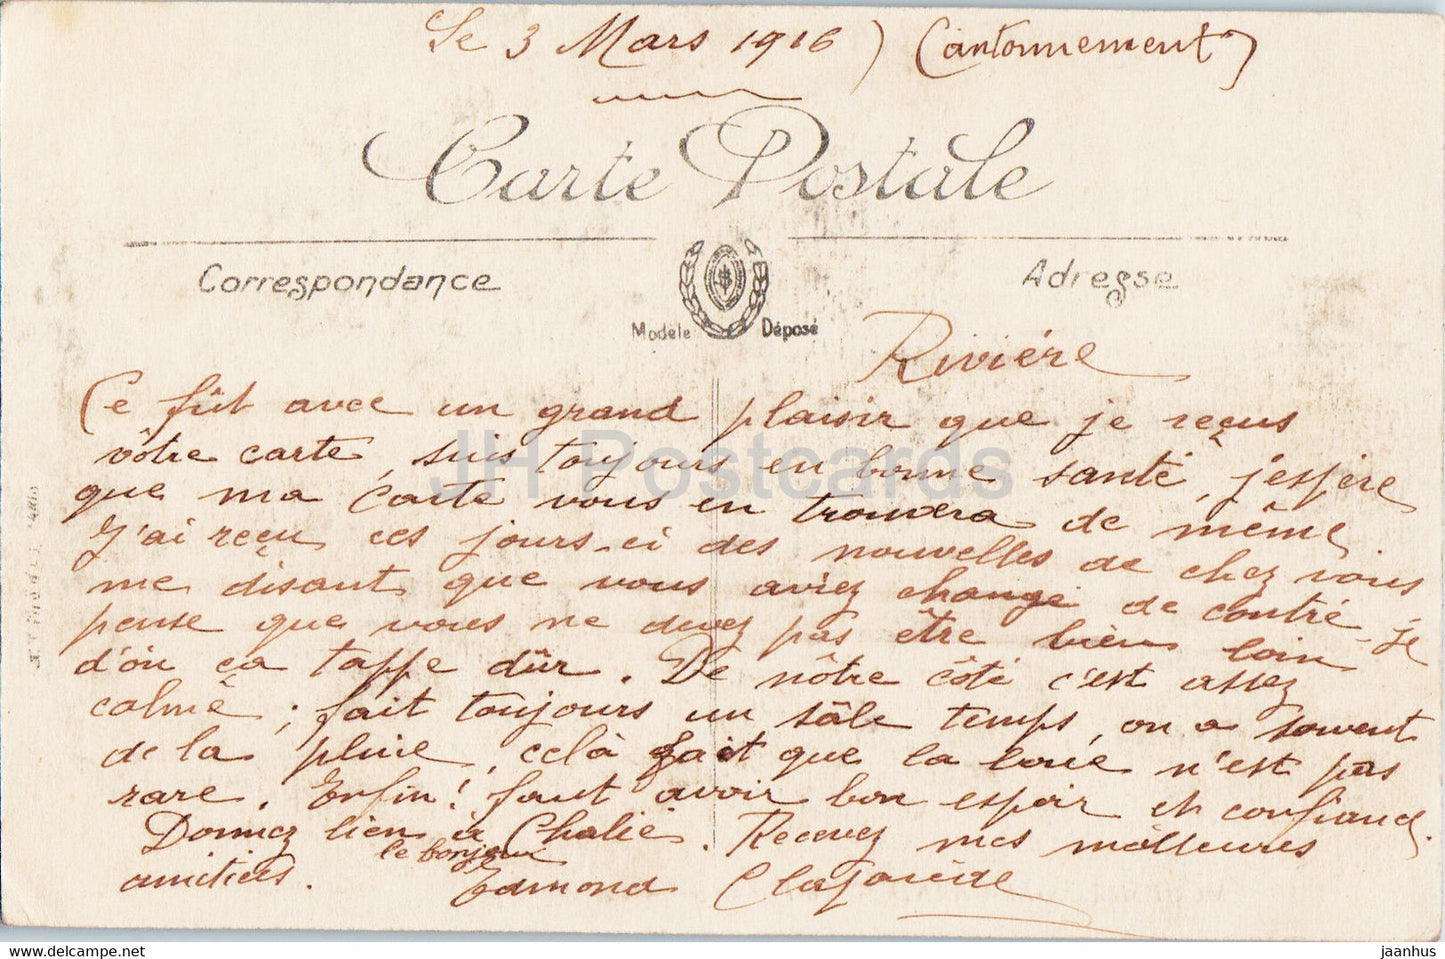 Le 3 Mars 1916) (Cantonnement)
Carte Postale
Correspondance
Adresse
Modèle Déposé
Rivière
Ce fût avec un grand plaisir que je reçus
vôtre carte, suis toujours en bonne santé, j'espère
que ma carte vous en trouvera de même,
J'ai reçu ces jours-ci des nouvelles de chez vous
me disant que vous aviez changé de contré - je
pense que vous ne devez pas être bien loin
d'où ça tappe dûr. De nôtre côté c'est assez
calme; fait toujours un sâle temps, on a souvent
de la pluie, celà fait que la boue n'est pas
rare. Enfin! faut avoir bon espoir et confiance.
Donnez bien à Chalie. Recevez mes meilleures
le bonjour
amitiés. Edmond
JH Postcards
www.delcampe.net
jaanhus